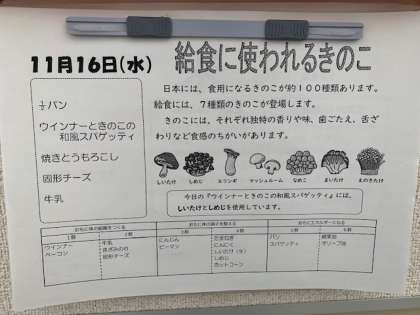 11月16日(水)
給食に使われるきのこ
½パン
ウインナーときのこの
和風スパゲッティ
焼きとうもろこし
固形チーズ
牛乳
日本には、食用になるきのこが約100種類あります。
給食には、7種類のきのこが登場します。
きのこには、それぞれ独特の香りや味、歯ごたえ、舌ざ
わりなど食感のちがいがあります。
しいたけ しめじ エリンギ マッシュルーム なめこ まいたけ えのきたけ
今日の『ウインナーときのこの和風スパゲッティ』には、
しいたけとしめじを使用しています。
おもに体の組織をつくる おもに体の調子を整える おもにエネルギーになる
1群 2群 3群 4群 5群 6群
ウインナー
ベーコン
牛乳
きざみのり
固形チーズ
にんじん
ピーマン
たまねぎ
にんにく
しいたけ
しめじ
ホールコーン
パン
スパゲッティ
オリーブ油